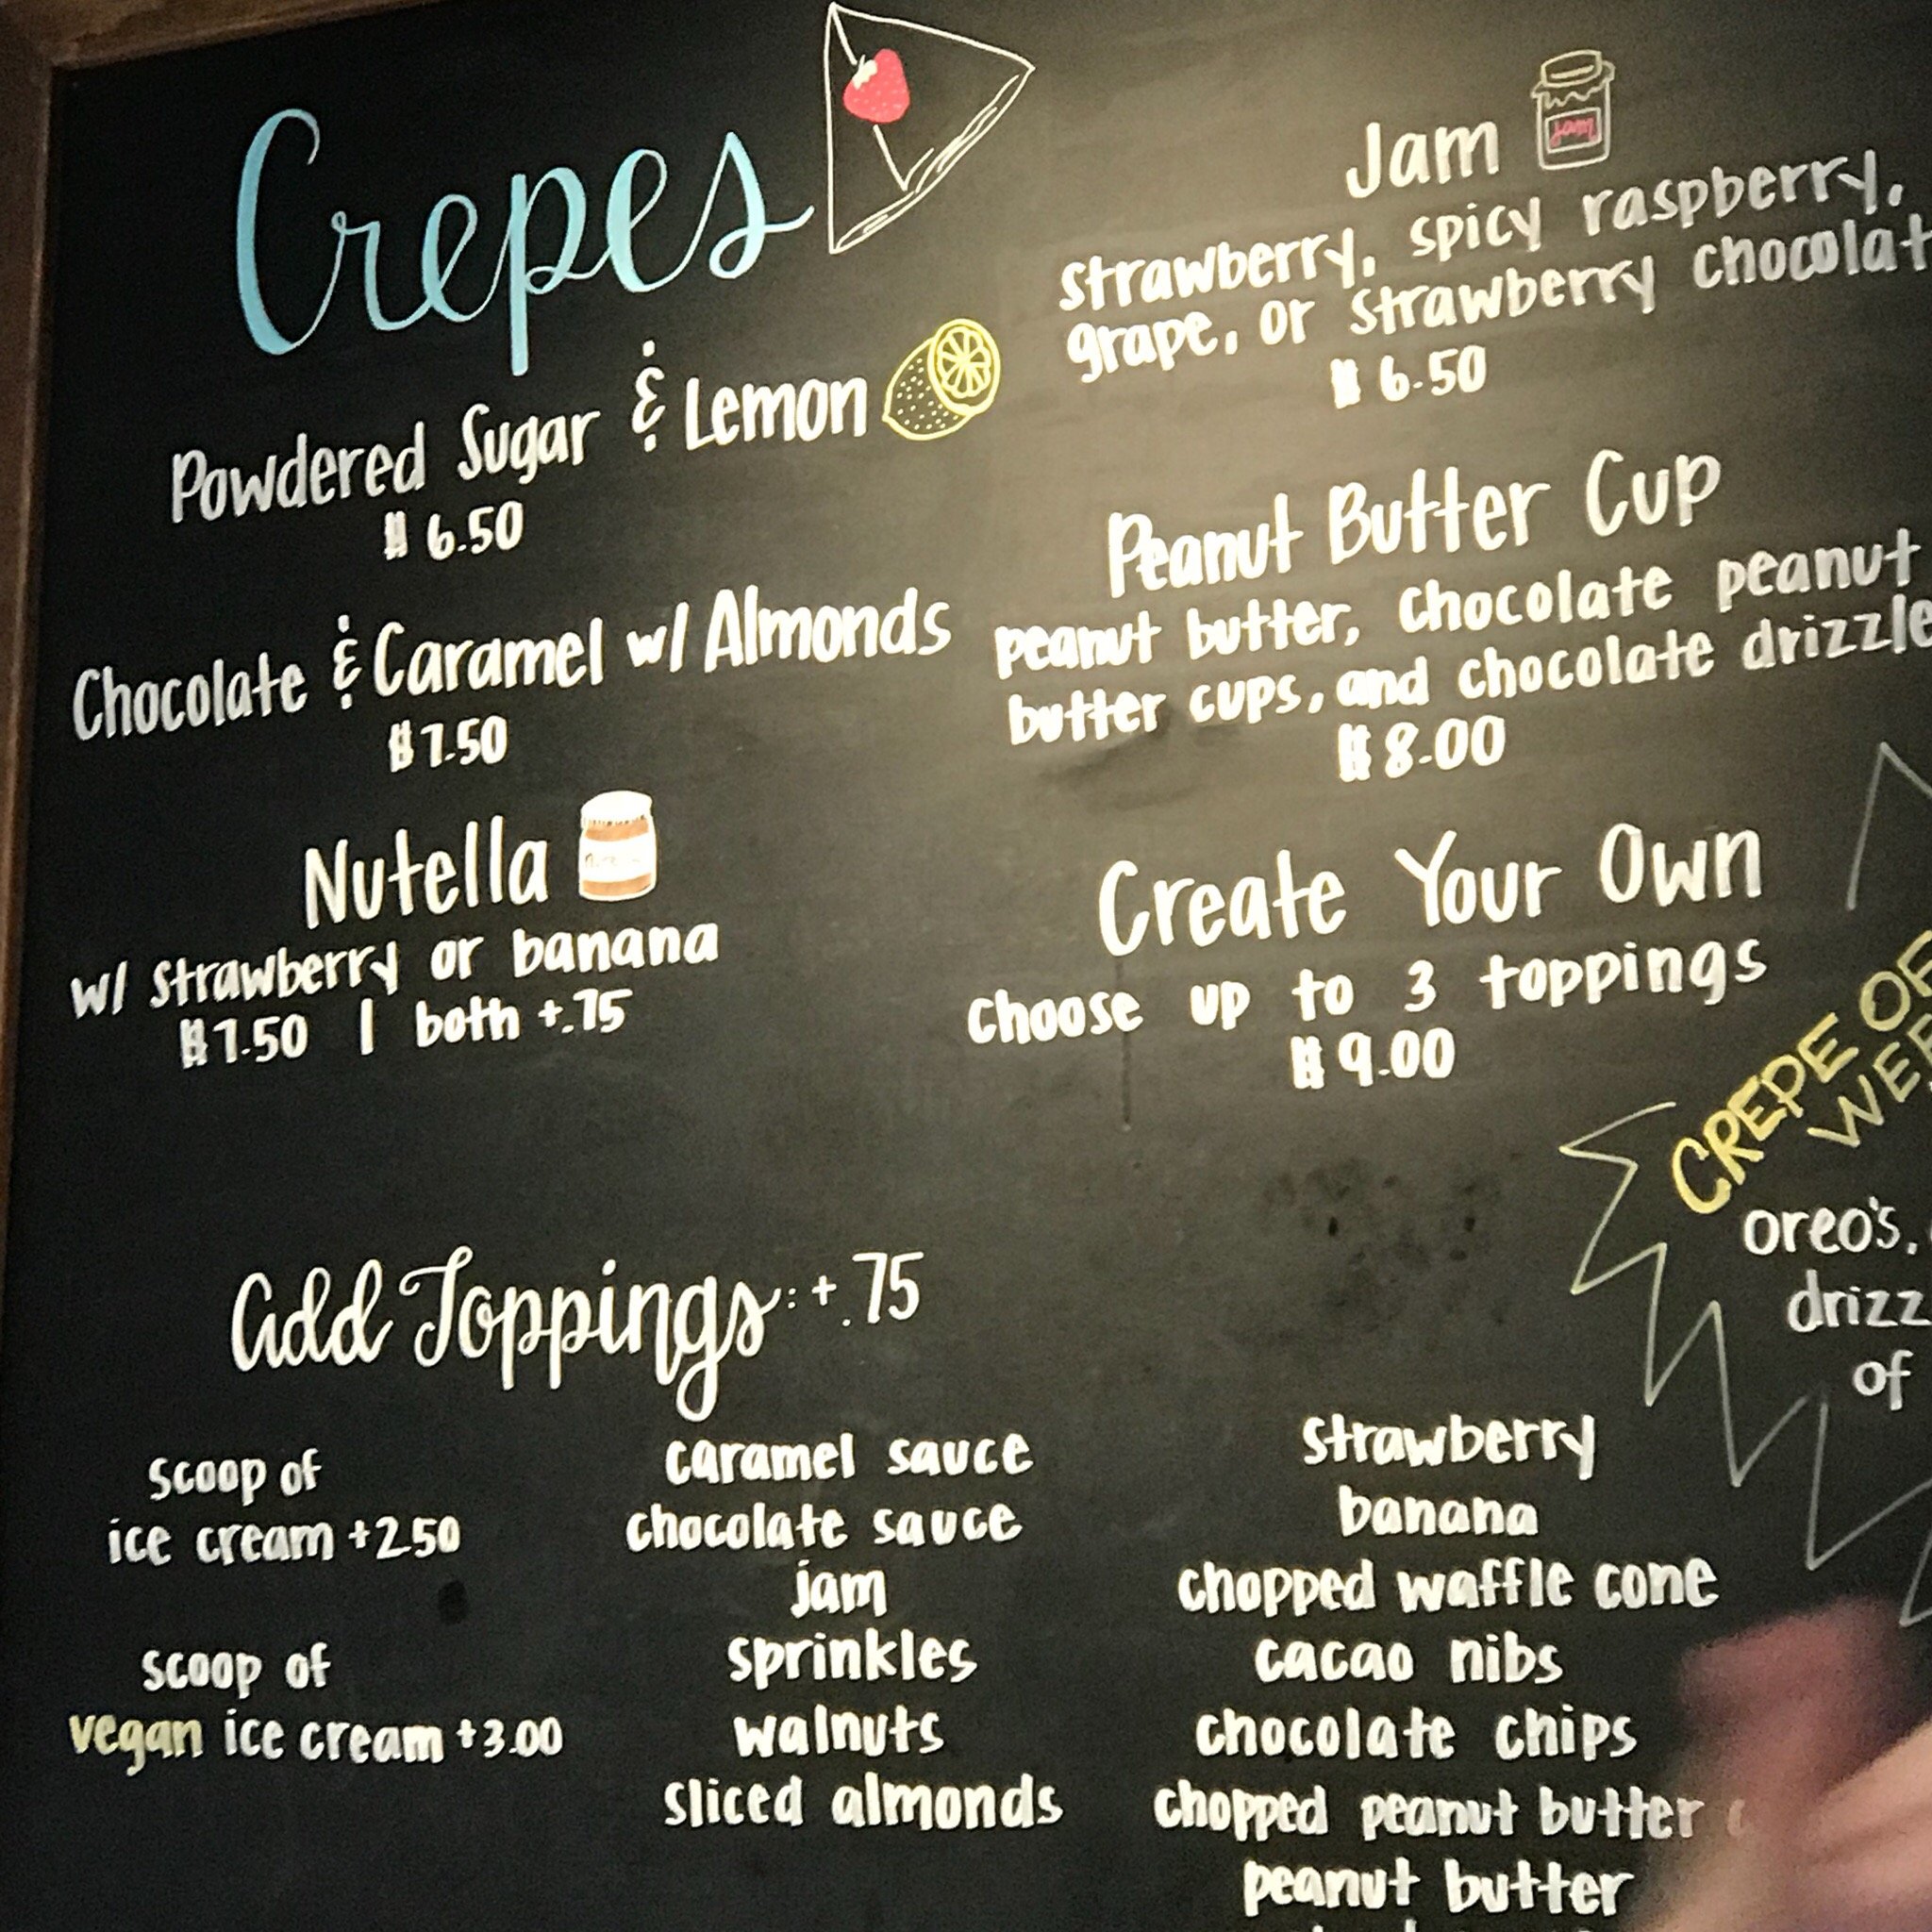 Crepes
Powdered Sugar & Lemon
$6.50
Chocolate & Caramel w/ Almonds
$7.50
Nutella
w/ strawberry or banana
$7.50 | both +.75
Jam
jam
strawberry, spicy raspberry,
grape, or strawberry chocolat
$6.50
Peanut Butter Cup
peanut butter, chocolate peanut
butter cups, and chocolate drizzle
$8.00
Create Your Own
choose up to 3 toppings
$9.00
CREPE OF
WEE
oreo's,
drizz
of
add Toppings: +.75
scoop of
ice cream +2.50
scoop of
vegan ice cream +3.00
caramel sauce
chocolate sauce
jam
sprinkles
walnuts
sliced almonds
strawberry
banana
chopped waffle cone
cacao nibs
chocolate chips
chopped peanut butter
peanut butter